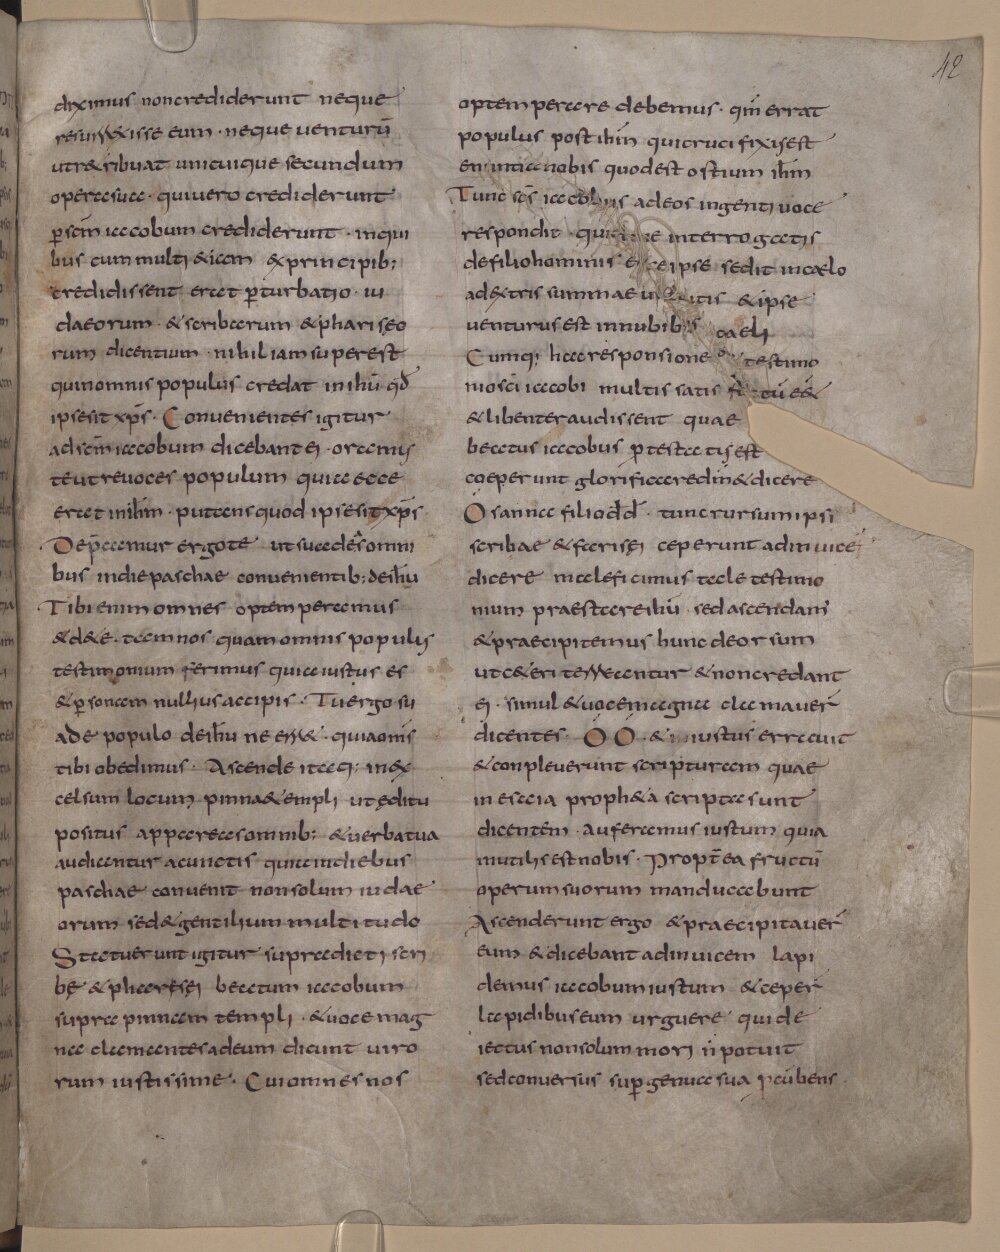 42
diximus noncrediderunt neque
resurrexisse eum · neque venturū
utr&ribuat unicuique secundum
operasua · quivero crediderunt
ꝑ scm̄ iacobum crediderunt · inqui
bus cum multi &iam &principib;
credidissent erat ꝑturbatio · iu
daeorum · &scribarum &phariseo
rum dicentium · nihil iam superest
quinomnis populus credat inihū qd̄
ipsesit xp̄s · Convenientes igitur
ad scm̄ iacobum dicebant ei · oramus
teutrevoces populum quia ecce
errat inihm̄ · putans quod ipsesit xp̄s
Depraecamur ergo te ut suadeas omni
bus indiepaschae convenientib; deihū
Tibi enim omnes optemperamus
&d&e · tam nos quam omnis populus
testimonium ferimus quia iustus es
&ꝑsonam nullius accipis · Tu ergo su
ade populo deihū ne err& · quiaom̄s
tibi obedimus · Ascende itaq; inex
celsum locum pinnaetempli ut editu
positus appareas omnib; &verbatua
audiantur acunctis quia indiebus
paschae convenit nonsolum iudae
orum sed&gentilium multitudo
Statuerunt igitur supradicti scri
bę &pharisęi beatum iacobum
supra pinnam templi · &voce mag
na clamantes adeum dicunt viro
rum iustissime · Cui omnes nos
optemperare debemus · qm̄ errat
populus post ihm̄ qui crucifixisest
enuntia nobis quodest ostium ihm̄
Tunc scs̄ iacobus adeos ingenti voce
respondit · qui me interrogatis
defiliohominis ipse sedit incaelo
adextris summae virtutis &ipse
venturus est innubibus caeli
Cumq; hac responsione & testimo
nio sci iacobi multis satis
&libenter audissent quae
beatus iacobus ꝑtestatus est
coeperunt glorificare dm̄ &dicere
Osanna filio dd̄ · tunc rursum ipsi
scribae &farisęi ceperunt ad invicē
dicere male fecimus tale testimo
nium praestare ihū · sed ascendam̄
&praecipitemus hunc deorsum
ut c&eri terreantur &noncredant
ei · simul &voce magna clamaver̄
dicentes · O O · & iustus erravit
&conpleverunt scripturam quae
in esaia proph&a scripta sunt
dicentem · auferamus iustum quia
inutilis est nobis · Propterea fructū
operum suorum manducabunt
Ascenderunt ergo &praecipitaver̄
eum &dicebant ad invicem lapi
demus iacobum iustum &ceper̄
lapidibus eum urguere quide
iectus nonsolum mori n̄ potuit
sed conversus suꝑ genua sua ꝓcubens